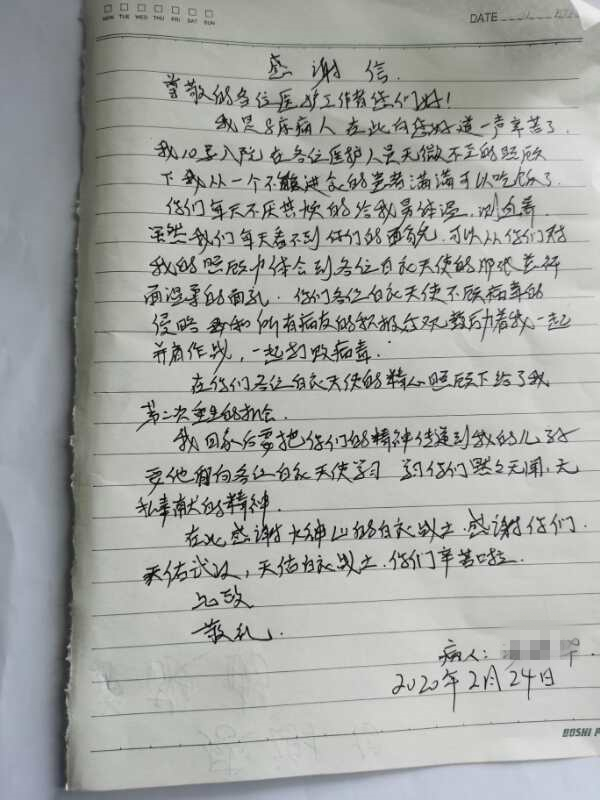 MON TUE WED THU FRI SAT SUN
DATE
感谢信.
尊敬的各位医护工作者您们好!
我是8床病人 在此向您们道一声辛苦了.
我10号入院 在各位医护人员无微不至的照顾
下 我从一个不能进食的患者 满满可以吃饭了.
你们每天不厌其烦的给我量体温, 测血氧
虽然我们每天看不到你们的面貌, 可以从你们对
我的照顾中体会到各位白衣天使的那张慈祥
而温柔的面孔. 你们各位白衣天使不顾病毒的
侵略 我和所有病友的积极乐观鼓励着我一起
并肩作战, 一起打败病毒.
在你们各位白衣天使的精心照顾下给了我
第二次重生的机会.
我回家后要把你们的精神传递到我的儿孙
要他们向各位白衣天使学习 学习你们默默无闻, 无
私奉献的精神.
在此感谢火神山的白衣战士. 感谢你们.
天佑武汉, 天佑白衣战士. 你们辛苦啦.
此致
敬礼.
病人:
2020年2月24日
BOSHI